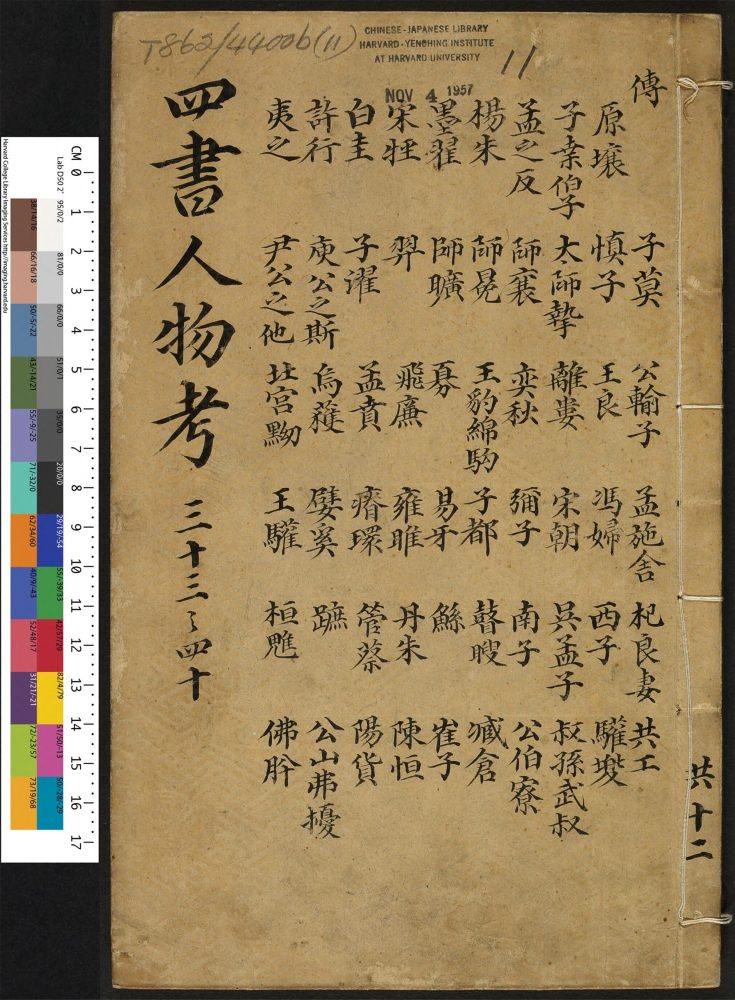 T862/4400b(11)
CHINESE-JAPANESE LIBRARY
HARVARD-YENCHING INSTITUTE
AT HARVARD UNIVERSITY
NOV 4 1957
11
共十二
傳 子莫 公輸子 孟施舍 杞良妻 共工
原壤 慎子 王良 馮婦 西子 驩
子桒伯子 太師摯 離婁 宋朝 吳孟子 叔孫武叔
孟之反 師襄 奕秋 彌子 南子 公伯寮
楊朱 師冕 王豹綿駒 子都 瞽瞍 臧倉
墨翟 師曠 奡 易牙 鯀 崔子
宋牼 羿 飛廉 雍雎 丹朱 陳恒
白圭 子濯 孟賁 瘠環 管蔡 陽貨
許行 庾公之斯 烏獲 嬖奚 蹠 公山弗擾
夷之 尹公之他 北宮黝 王驩 桓魋 佛肸
四書人物考 三十三之四十
CM 0 1 2 3 4 5 6 7 8 9 10 11 12 13 14 15 16 17
Harvard College Library Imaging Services